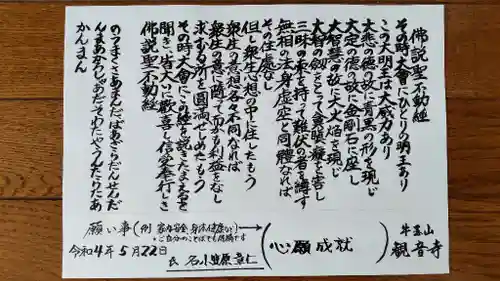 佛説聖不動経
その時大會にひとりの明王あり
この大明王は大威力あり
大悲の徳の故に青黒の形を現じ
大定の徳の故に金剛石に座し
大智慧の故に大火焔を現じ
大智の剣をとって貪瞋癡を害し
三昧の索を持って難伏の者を縛す
無相の法身虚空と同體なれば
その住處なし
但し衆生心想の中に住したもう
衆生の意想各々不同なれば
衆生の意に随って而かも利益をなし
求むる所を圓満せしめたもう
その時大會この経を説きたまえるを
聞き皆大いに歓喜し信受奉行しき
佛説聖不動経
のうまくさあまんだばあざらだんせんだ
んまあかろしゃあだそわたやうんたらたあ
かんまん
願い事(例 家内安全、身体健康など)
・ご自分のことばでも結構です
(心願成就)
牛玉山
観音寺
令和4年5月22日
氏 名小笠原章仁